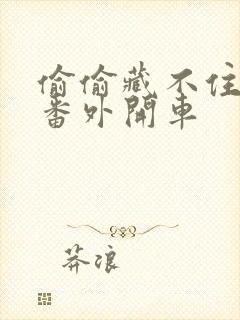 偷偷藏不住
番外開車
莽浪